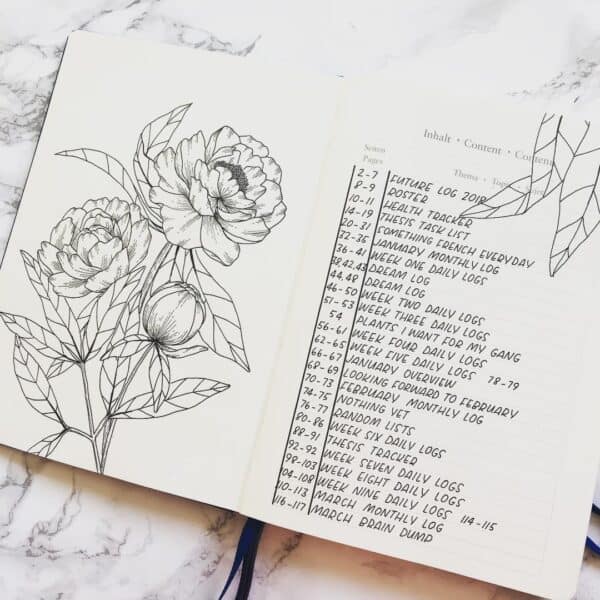 Inhalt · Content · Conten
Seiten
Pages
Thema · Topic · Sujet
2-7 FUTURE LOG 2018
8-9 ROSTER
10-11 HEALTH TRACKER
14-19 THESIS TASK LIST
20-31 SOMETHING FRENCH EVERYDAY
32-35 JANUARY MONTHLY LOG
36-41 WEEK ONE DAILY LOGS
38,42,43 DREAM LOG
44,48 DREAM LOG
46-50 WEEK TWO DAILY LOGS
51-53 WEEK THREE DAILY LOGS
54 PLANTS I WANT FOR MY GANG
56-61 WEEK FOUR DAILY LOGS
62-65 WEEK FIVE DAILY LOGS 78-79
66-67 JANUARY OVERVIEW
68-69 LOOKING FORWARD TO FEBRUARY
70-73 FEBRUARY MONTHLY LOG
74-75 NOTHING YET
76-77 RANDOM LISTS
80-86 WEEK SIX DAILY LOGS
88-91 THESIS TRACKER
92-92 WEEK SEVEN DAILY LOGS
98-103 WEEK EIGHT DAILY LOGS
104-108 WEEK NINE DAILY LOGS 114-115
110-113 MARCH MONTHLY LOG
116-117 MARCH BRAIN DUMP